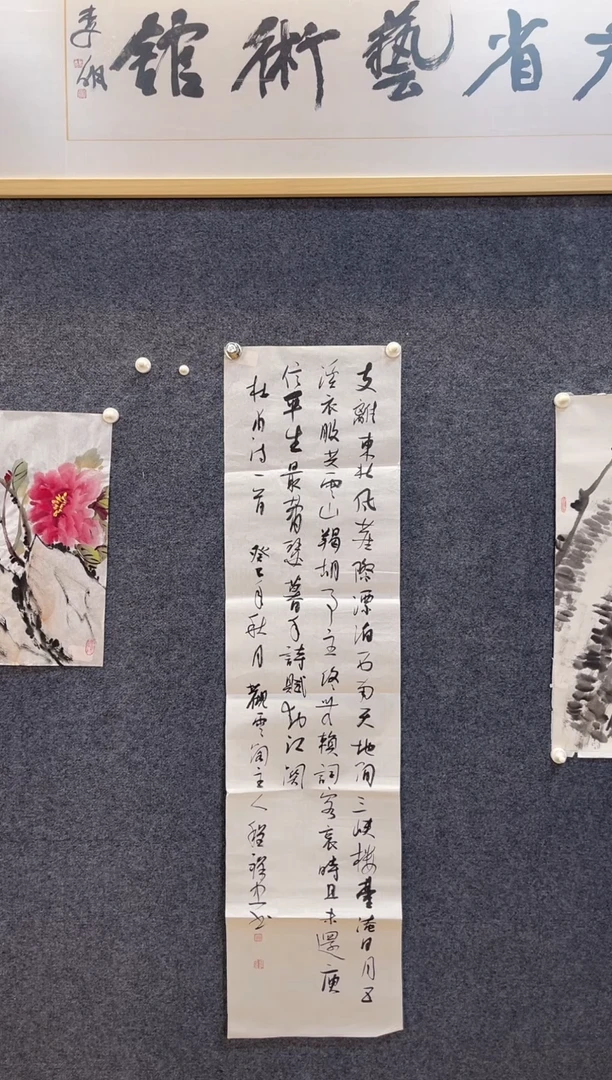 省藝術館
支離東北风塵際漂泊西南天地间三峡楼臺淹日月五
溪衣服共雲山羯胡事主终無賴詞客哀時且未還庾
信平生最蕭瑟暮年詩賦动江関
杜甫诗一首 癸巳年秋月 觀雲阁主人程书